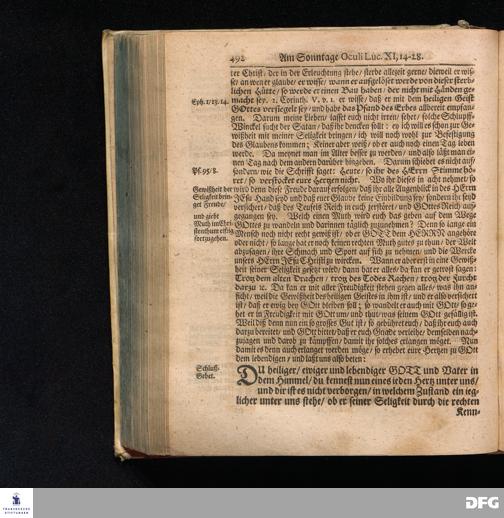 492 Am Sonntage Oculi Luc. XI, 14-28.
ter Christ/ der in der Erleuchtung stehe/ sterbe allezeit gerne/ dieweil er wis-
se/ an wen er glaube/ er wisse/ wann er aufgelöset werde von dieser sterb-
lichen Hütte/ so werde er einen Bau haben/ der nicht mit Händen ge-
Eph. 1/13. 14.
macht sey. 2. Corinth. V. v. 1. er wisse/ daß er mit dem heiligen Geist
GOttes versiegelt sey/ und habe das Pfand des Erbes allbereit empfan-
gen. Darum meine Lieben/ lasset euch nicht irren/ sehet/ solche Schlupff-
Winckel sucht der Satan/ daß ihr dencken sollt: ey ich will es schon zur Ge-
wißheit mit meiner Seligkeit bringen/ ich will noch wohl zur Befestigung
des Glaubens kommen; Keiner aber weiß/ ob er auch noch einen Tag leben
werde. Da meynet man im Alter besser zu werden/ und also läßt man ei-
nen Tag nach dem andern darüber hingehen. Darum schiebet es nicht auf/
Ps. 95/8.
sondern wie die Schrifft saget: Heute/ so ihr des HErrn Stimme hö-
ret/ so verstocket eure Hertzen nicht. Wo ihr dieses in acht nehmet/ so
Gewißheit der Seligkeit bringet Freude/
wird denn diese Freude darauf erfolgen/ daß ihr alle Augenblick in des HErrn
JEsu Hand seyd und daß euer Glaube keine Einbildung sey/ sondern ihr seyd
versichert/ daß des Teufels Reich in euch zerstöret/ und GOttes Reich auf-
und giebt Muth im Christenthum eifrig fortzugehen.
gegangen sey. Welch einen Muth wird euch das geben auf dem Wege
GOttes zu wandeln und darinnen täglich zuzunehmen? Denn so lange ein
Mensch noch nicht recht gewiß ist/ ob er GOTT dem HERRN angehöre
oder nicht/ so lange hat er noch keinen rechten Muth gutes zu thun/ der Welt
abzusagen/ ihre Schmach und Spott auf sich zu nehmen/ und die Wercke
unsers HErrn JEsu Christi zu wircken. Wann er aber erst in eine Gewiß-
heit seiner Seligkeit gesetzt wird/ dann hat er alles/ da kan er getrost sagen:
Trotz dem alten Drachen/ trotz des Todes Rachen/ trotz der Furcht
darzu ꝛc. Da kan er mit aller Freudigkeit stehen gegen alles/ was ihn an-
ficht/ weil die Gewißheit des heiligen Geistes in ihm ist/ und er also versichert
ist/ daß er ewig bey GOtt bleiben soll; so wandelt er auch mit GOtt/ so ge-
het er in Freudigkeit mit GOtt um/ und thut/ was seinem GOtt gefällig ist.
Weil diß denn nun ein so grosses Gut ist/ so gebühret euch/ daß ihr euch auch
darzu bereitet/ und GOtt bittet/ daß er euch Gnade verleihe/ demselben nach-
zujagen und darob zu kämpffen/ damit ihr solches erlangen möget. Nun
damit es denn auch erlanget werden möge/ so erhebet eure Hertzen zu GOtt
dem lebendigen/ und laßt uns also beten:
Schluß-Gebet.
DU heiliger/ ewiger und lebendiger GOTT und Vater in
dem Himmel/ du kennest nun eines ieden Hertz unter uns/
und dir ist es nicht verborgen/ in welchem Zustand ein ieg-
licher unter uns stehe/ ob er seiner Seligkeit durch die rechten
Kenn-
FRANCKESCHE STIFTUNGEN
DFG